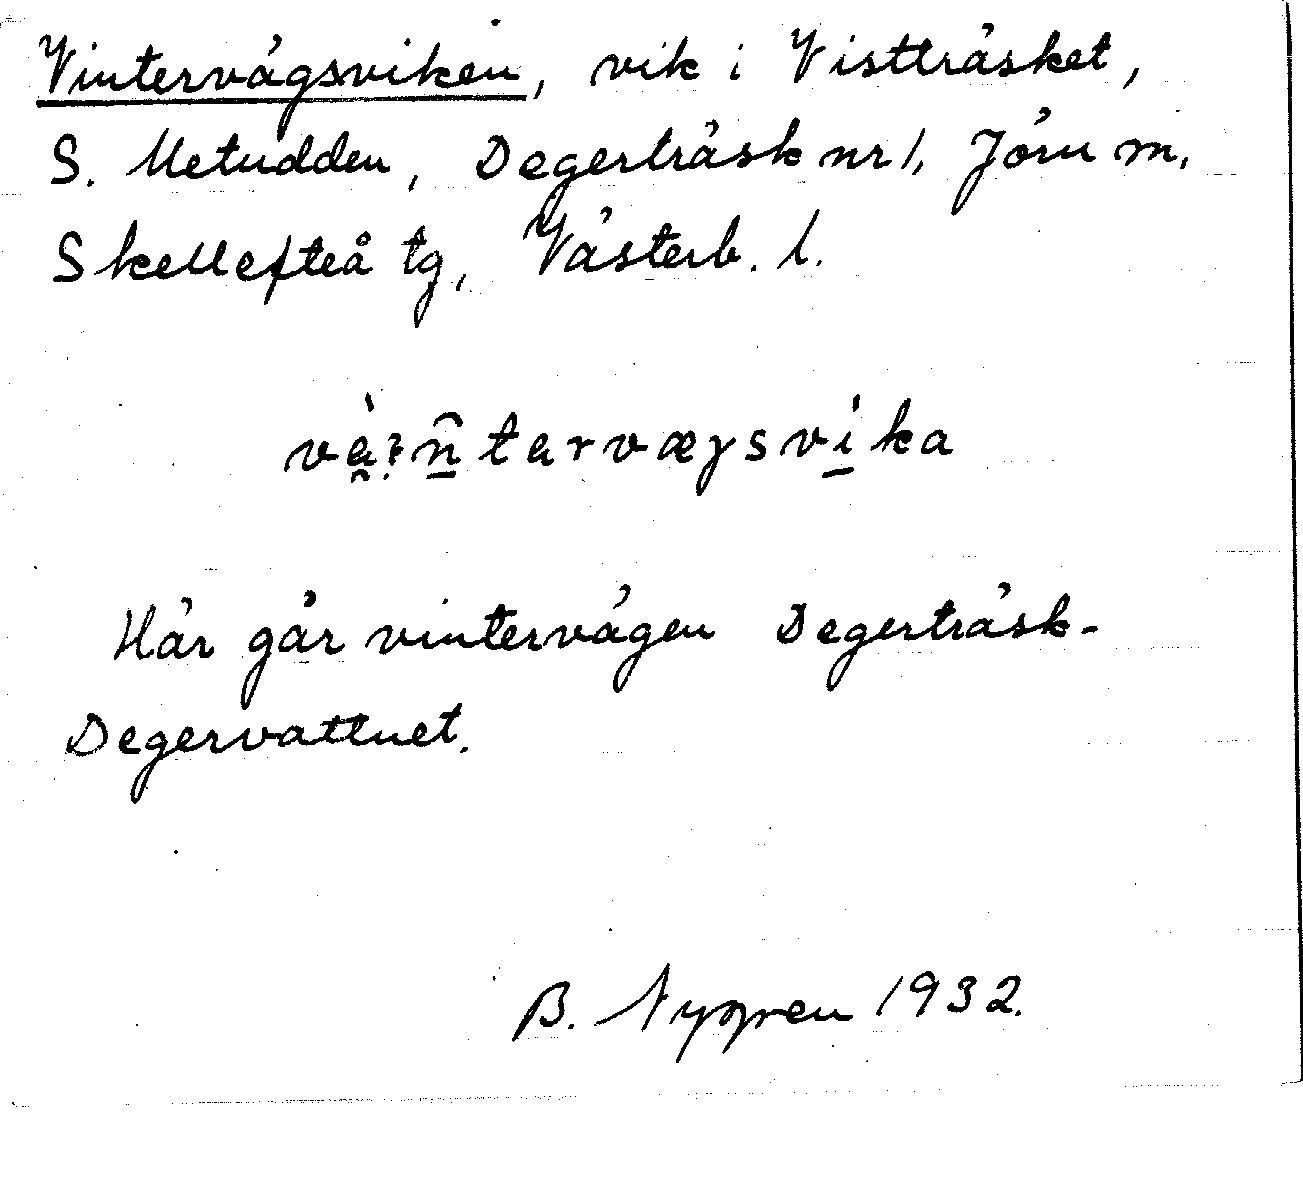 Vintervägsviken, vik i Vistträsket,
S. Metudden, Degerträsk nr 1, Jörn sn,
Skellefteå tg, Västerb. l.
Här går vintervägen Degerträsk-
Degervattnet.
B. Nygren 1932.